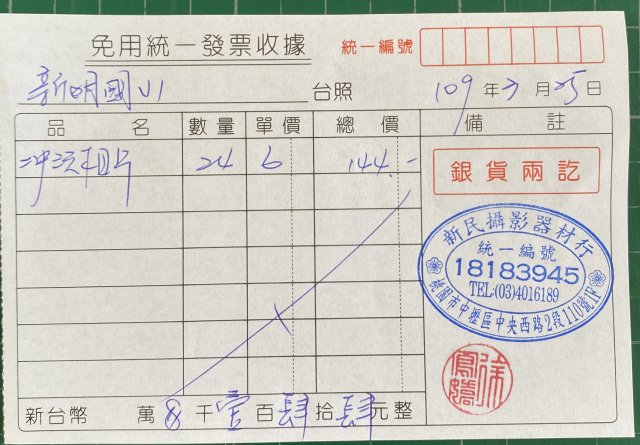 免用統一發票收據
統一編號
新明國小 台照
109年3月25日
品名 數量 單價 總價 備註
冲洗相片 24 6 144.-
銀貨兩訖
新民攝影器材行
統一編號
18183945
TEL:(03)4016189
桃園市中壢區中央西路2段110號1F
新台幣 萬 千壹百肆拾肆元整